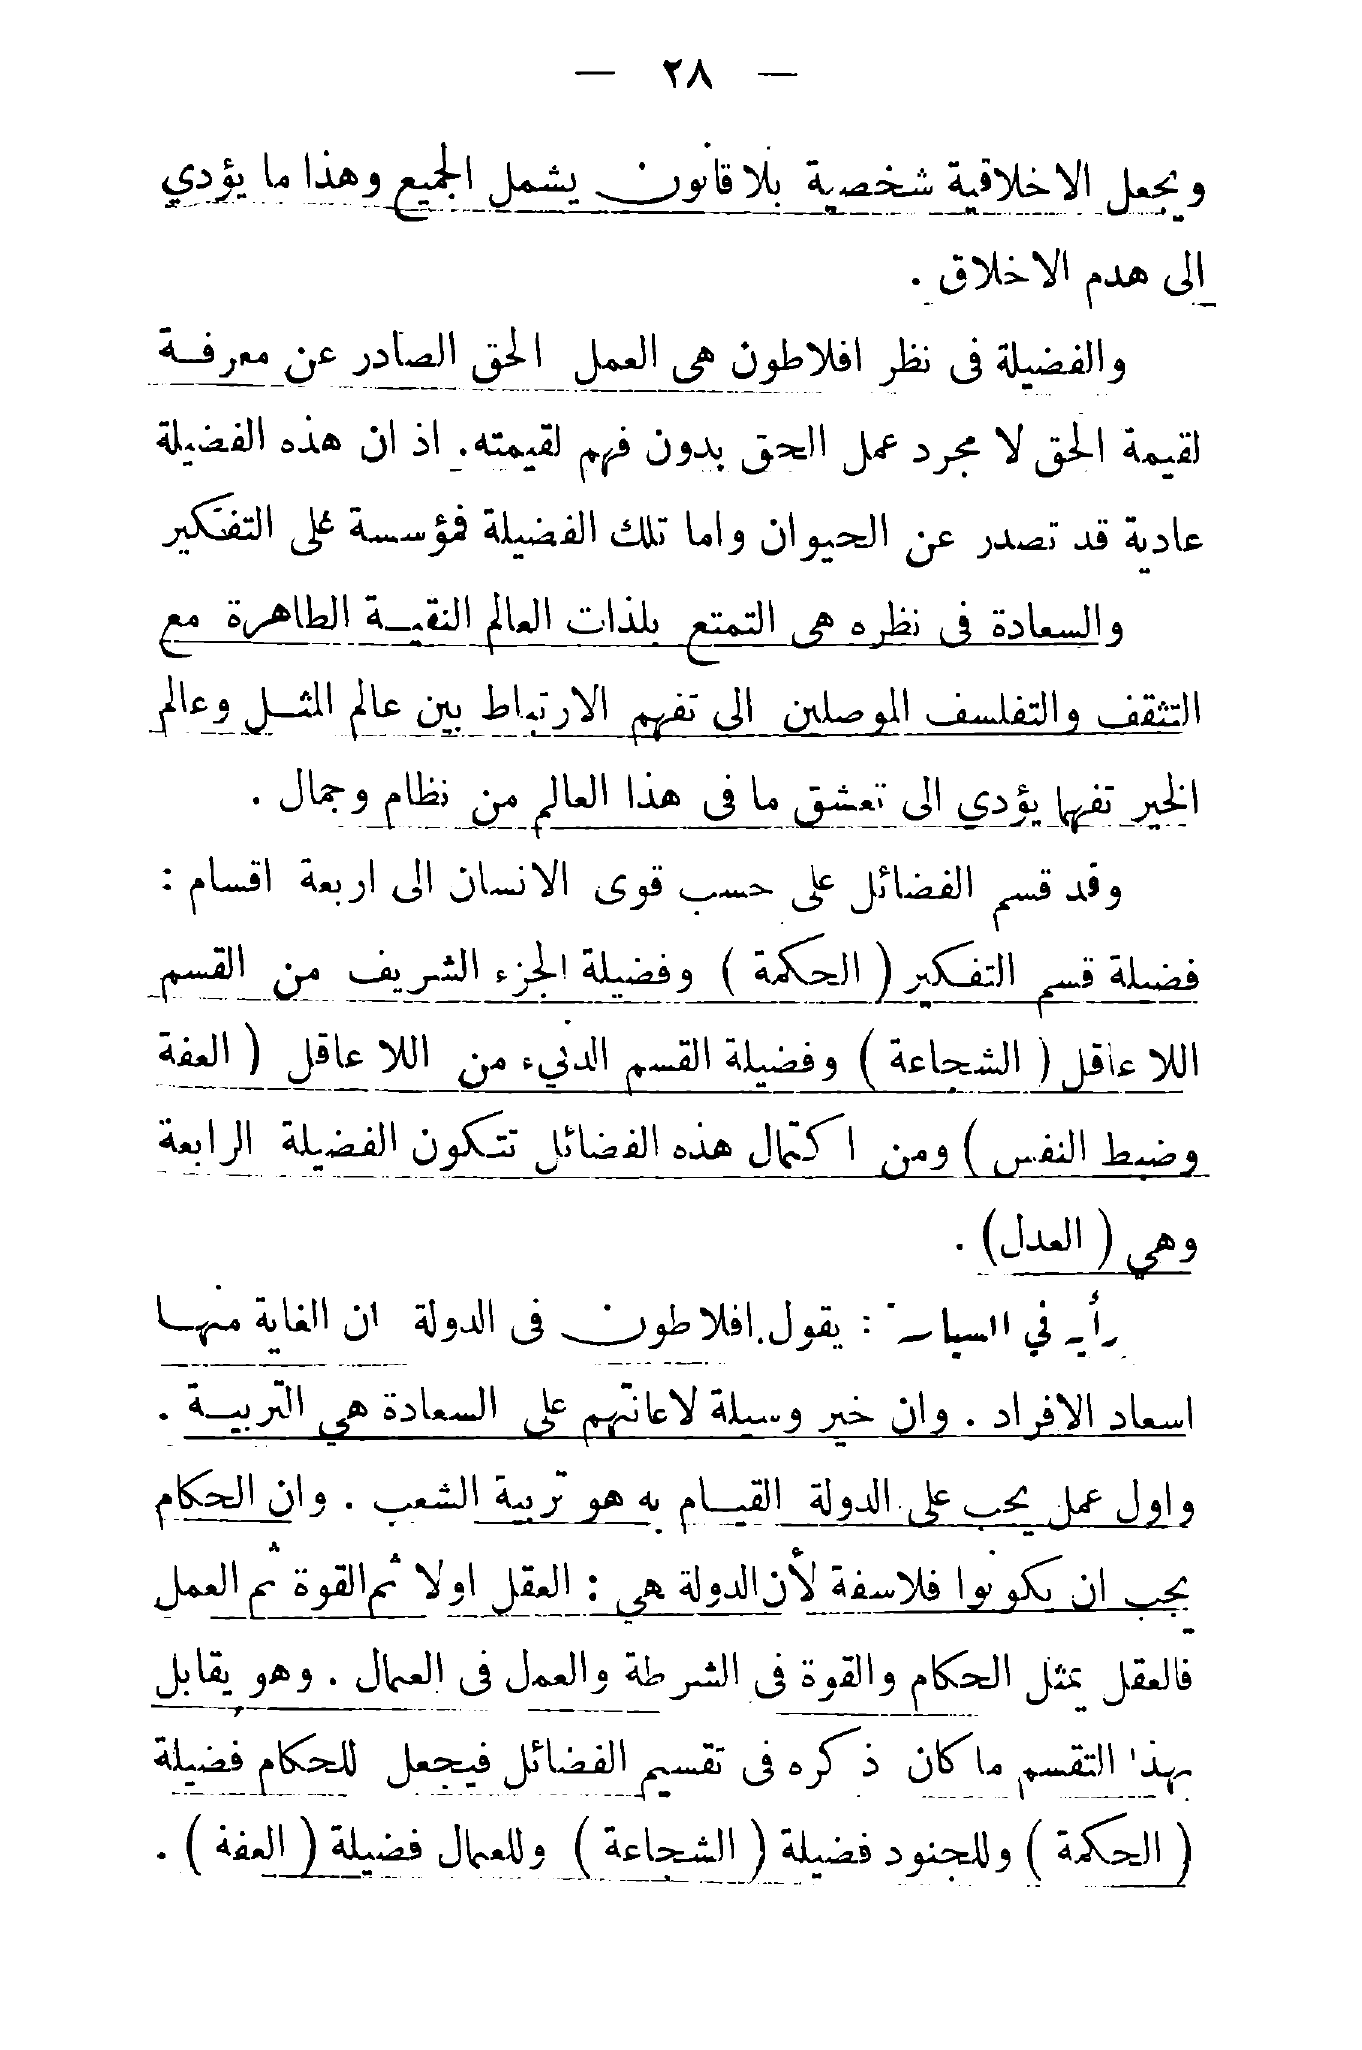 — ٢٨ —
ويجعل الاخلاقية شخصية بلا قانون يشمل الجميع وهذا ما يؤدي
الى هدم الاخلاق .
والفضيلة فى نظر افلاطون هى العمل الحق الصادر عن معرفة
لقيمة الحق لا مجرد عمل الحق بدون فهم لقيمته. اذ ان هذه الفضيلة
عادية قد تصدر عن الحيوان واما تلك الفضيلة فمؤسسة على التفكير
والسعادة فى نظره هى التمتع بلذات العالم النقية الطاهرة مع
التثقف والتفلسف الموصلين الى تفهم الارتباط بين عالم المثل وعالم
الخير تفهما يؤدي الى تعشق ما فى هذا العالم من نظام وجمال .
وقد قسم الفضائل على حسب قوى الانسان الى اربعة اقسام :
فضيلة قسم التفكير ( الحكمة ) وفضيلة الجزء الشريف من القسم
اللا عاقل ( الشجاعة ) وفضيلة القسم الدنيء من اللا عاقل ( العفة
وضبط النفس ) ومن اكتمال هذه الفضائل تتكون الفضيلة الرابعة
وهي ( العدل ) .
رأيه في السياسة : يقول افلاطون فى الدولة ان الغاية منها
اسعاد الافراد . وان خير وسيلة لاعانتهم على السعادة هي التربية .
واول عمل يجب على الدولة القيام به هو تربية الشعب . وان الحكام
يجب ان يكونوا فلاسفة لأن الدولة هي : العقل اولا ثم القوة ثم العمل
فالعقل يمثل الحكام والقوة فى الشرطة والعمل فى العمال . وهو يقابل
بهذا التقسم ما كان ذكره فى تقسيم الفضائل فيجعل للحكام فضيلة
( الحكمة ) وللجنود فضيلة ( الشجاعة ) وللعمال فضيلة ( العفة ) .